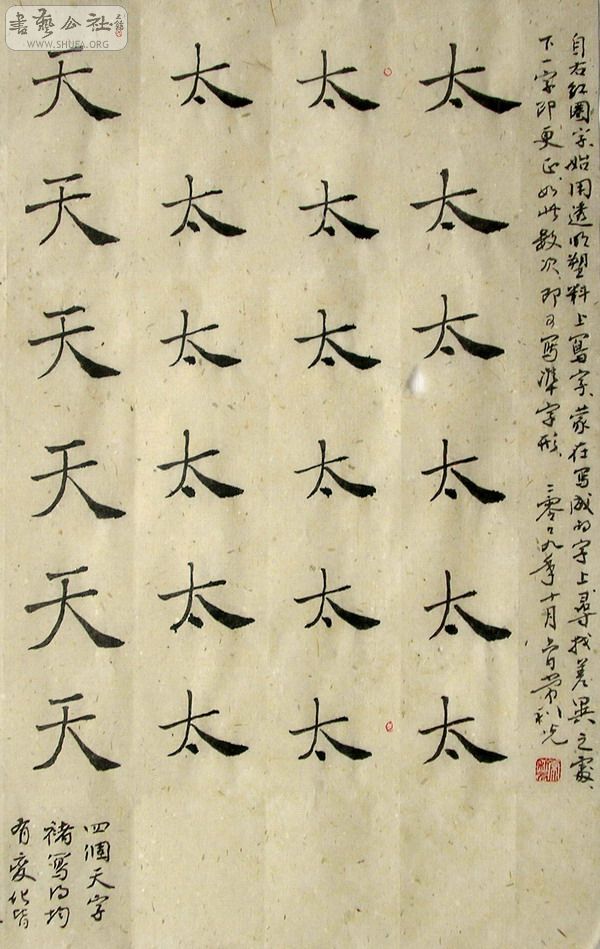 書藝公社
WWW.SHUFA.ORG
自右红圈字始用透明塑料上寫字、蒙在写成的字上尋找差異之處、
下一字即更正、如此數次、即可写準字形、二零零九年十月常利光
太太太太太太
太太太太太太
太太太太太太
天天天天天天
四個天字
褚寫的均
有變化皆